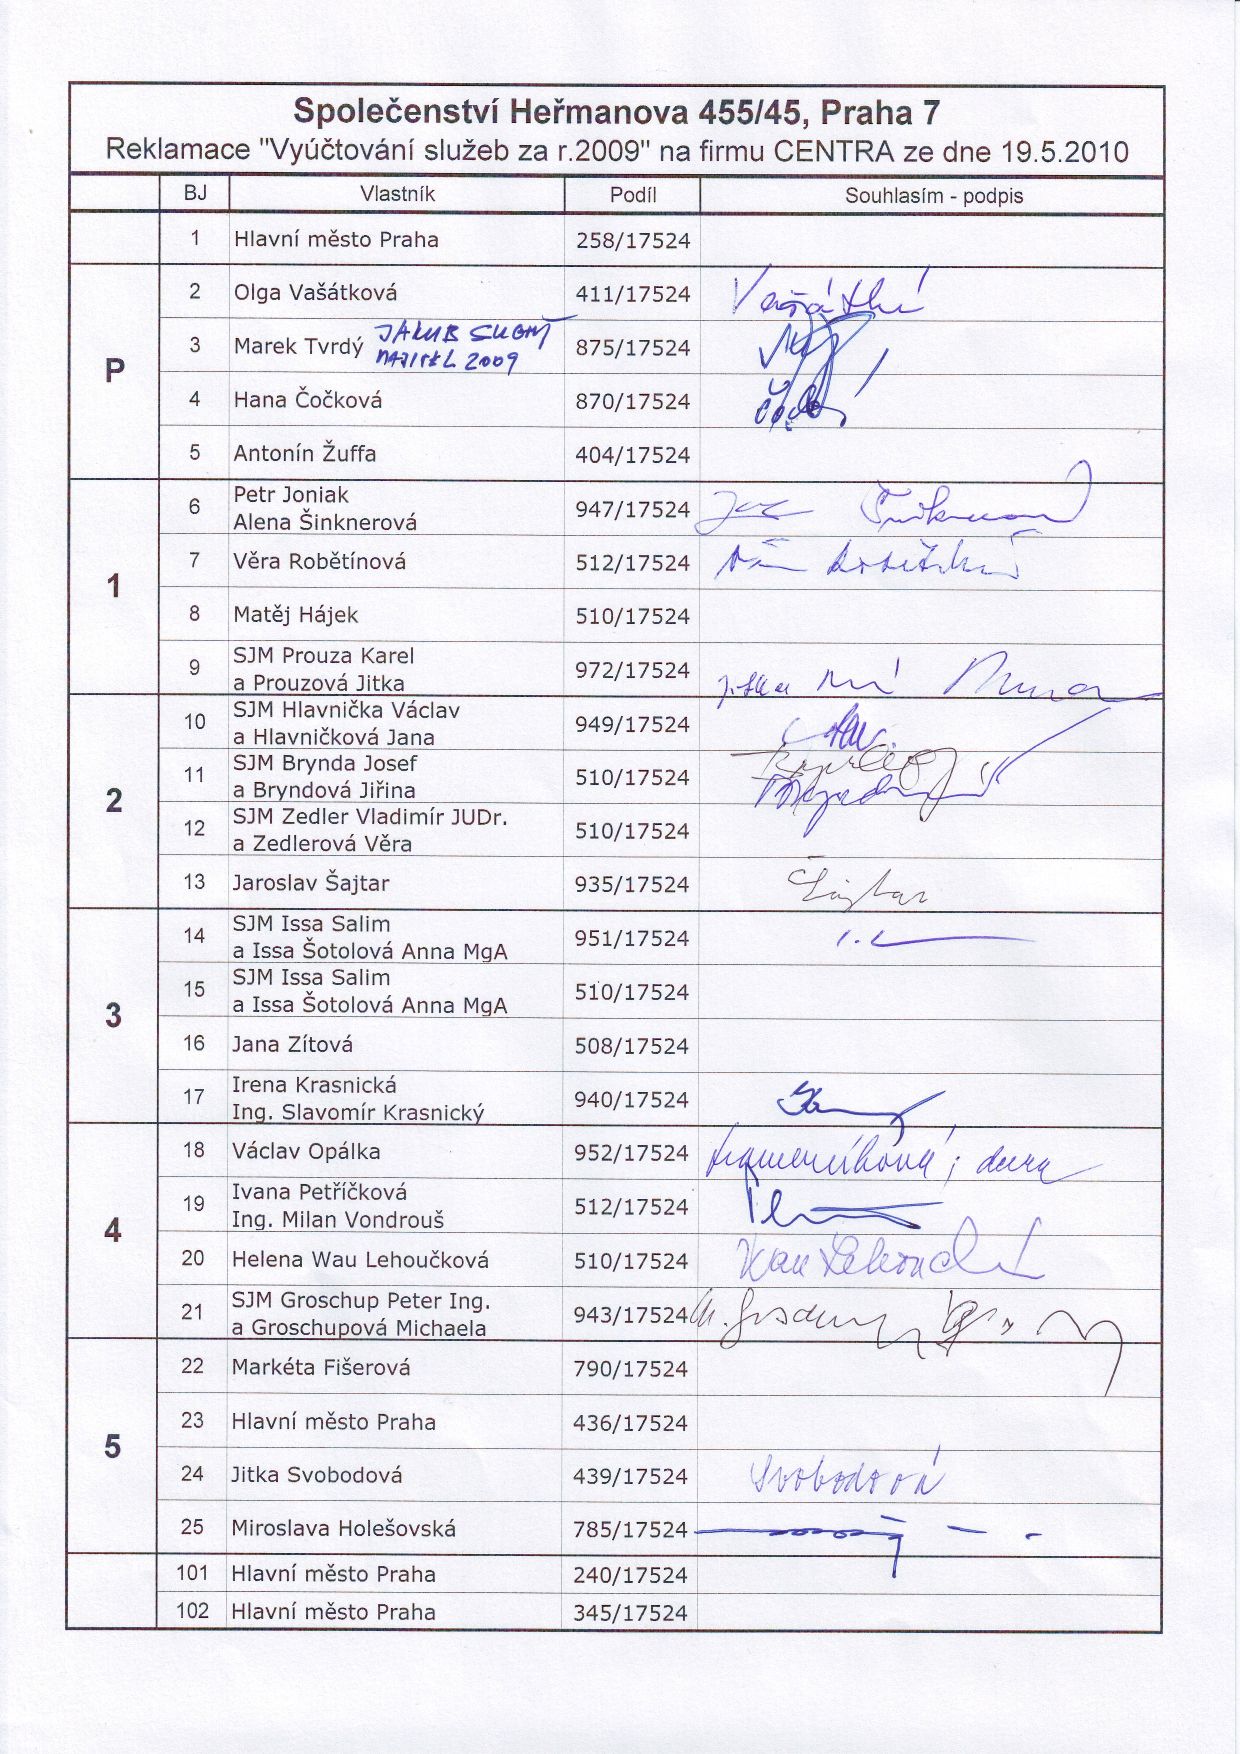 Společenství Heřmanova 455/45, Praha 7
Reklamace "Vyúčtování služeb za r.2009" na firmu CENTRA ze dne 19.5.2010
BJ Vlastník Podíl Souhlasím - podpis
1 Hlavní město Praha 258/17524
P
2 Olga Vašátková 411/17524
3 Marek Tvrdý JAKUB SUCHÝ 875/17524
2009
4 Hana Čočková 870/17524
5 Antonín Žuffa 404/17524
1
6 Petr Joniak
Alena Šinknerová 947/17524
7 Věra Robětínová 512/17524
8 Matěj Hájek 510/17524
9 SJM Prouza Karel
a Prouzová Jitka 972/17524
2
10 SJM Hlavnička Václav
a Hlavničková Jana 949/17524
11 SJM Brynda Josef
a Bryndová Jiřina 510/17524
12 SJM Zedler Vladimír JUDr.
a Zedlerová Věra 510/17524
13 Jaroslav Šajtar 935/17524 Šajtar
3
14 SJM Issa Salim
a Issa Šotolová Anna MgA 951/17524
15 SJM Issa Salim
a Issa Šotolová Anna MgA 510/17524
16 Jana Zítová 508/17524
17 Irena Krasnická
Ing. Slavomír Krasnický 940/17524
4
18 Václav Opálka 952/17524
19 Ivana Petříčková
Ing. Milan Vondrouš 512/17524
20 Helena Wau Lehoučková 510/17524
21 SJM Groschup Peter Ing.
a Groschupová Michaela 943/17524
5
22 Markéta Fišerová 790/17524
23 Hlavní město Praha 436/17524
24 Jitka Svobodová 439/17524 Svobodová
25 Miroslava Holešovská 785/17524
101 Hlavní město Praha 240/17524
102 Hlavní město Praha 345/17524